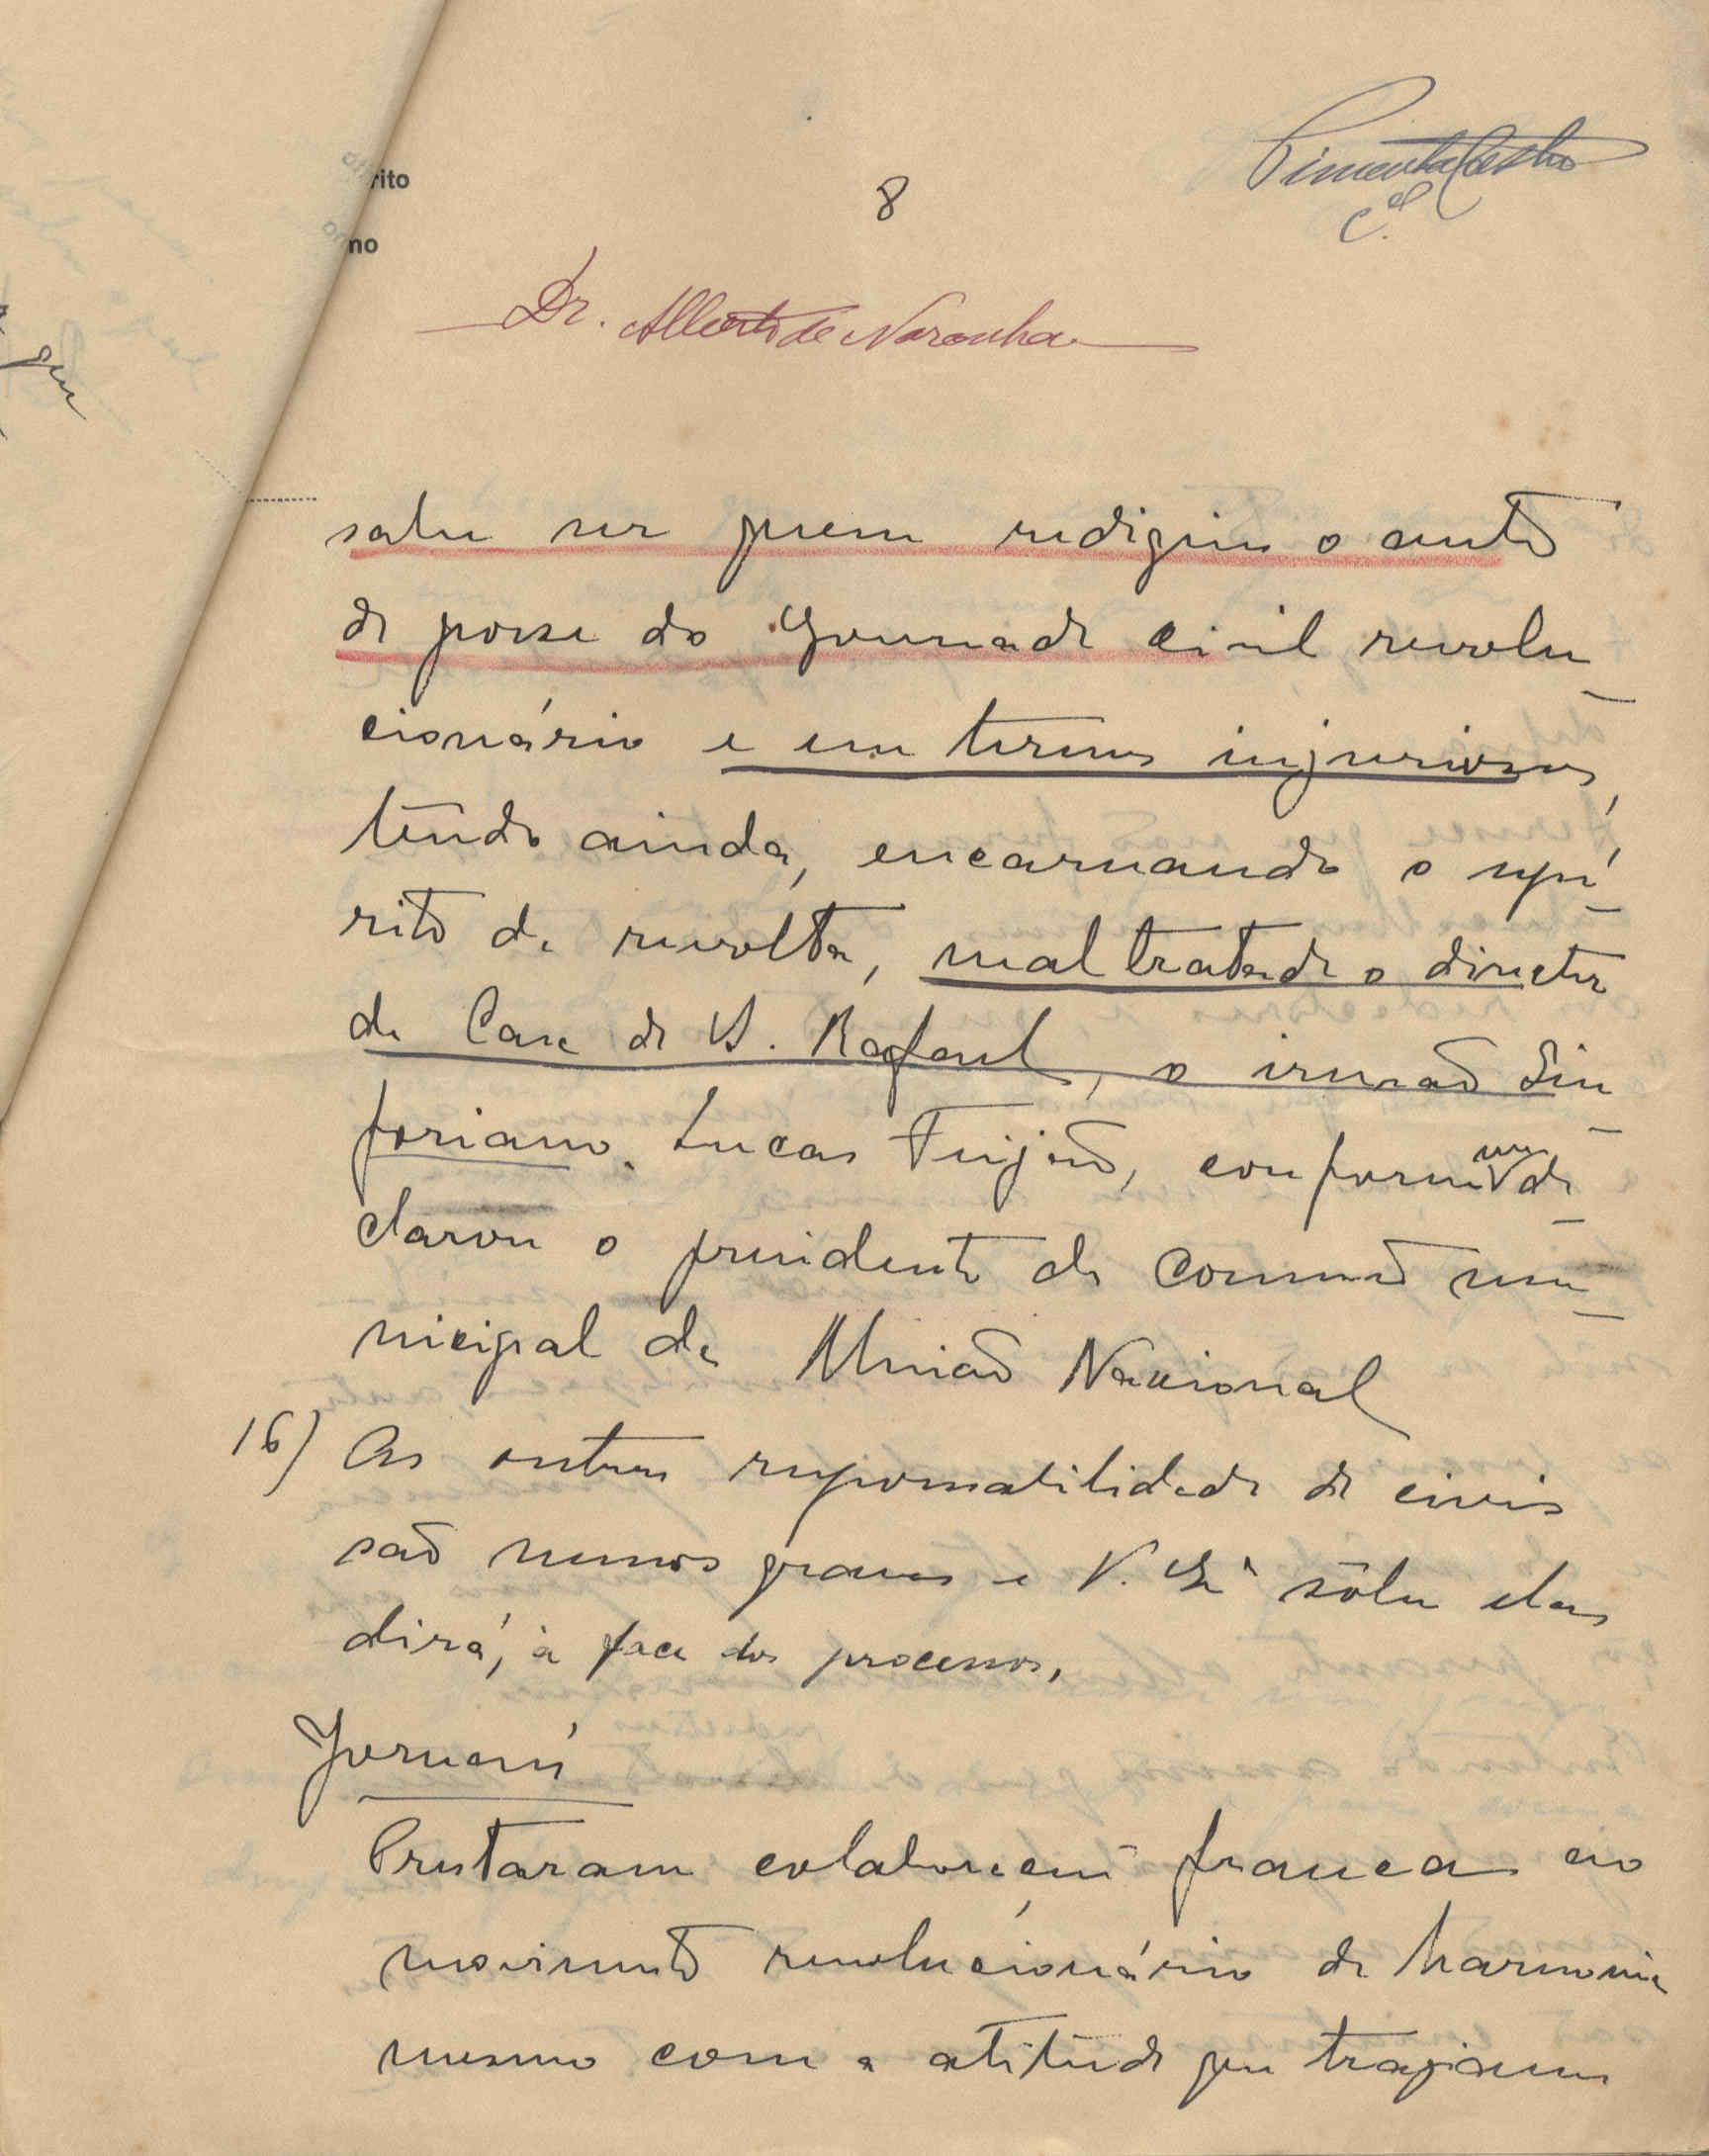 rito
no
8
Pimenta Castro
C.el
Dr. Alberto de Noronha
que
sabe ser quem redigiu o auto
de posse do Governador civil revolu-
cionário e em termos injuriosos,
tendo ainda, encarnando o espí-
rito da revolta, maltratado o director
da Casa de S. Rafael, o irmão Sin-
foriano Lucas Feijão, conforme me de-
clarou o presidente da Comissão mu-
nicipal da União Nacional
16) As outras responsabilidades de civis
são menos graves e V. Exª sôbre elas
dirá, à face dos processos,
Jornais
Prestaram colaboração franca ao
movimento revolucionário de harmonia
mesmo com a atitude que traziam